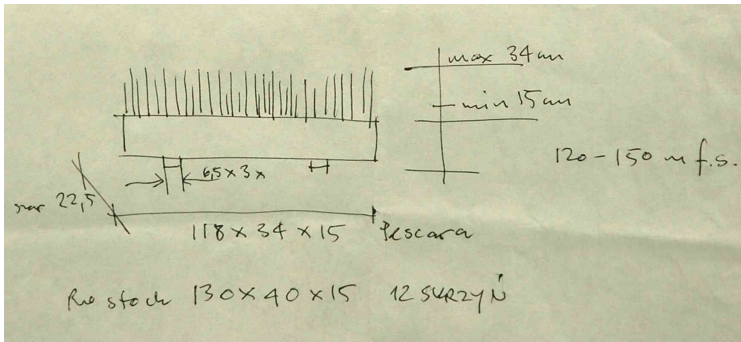 max 34 cm
min 15 cm
120-150 m f.s.
6,5 x 3 x
22,5
118 x 34 x 15 Pescara
130 x 40 x 15 12 SKRZYŃ